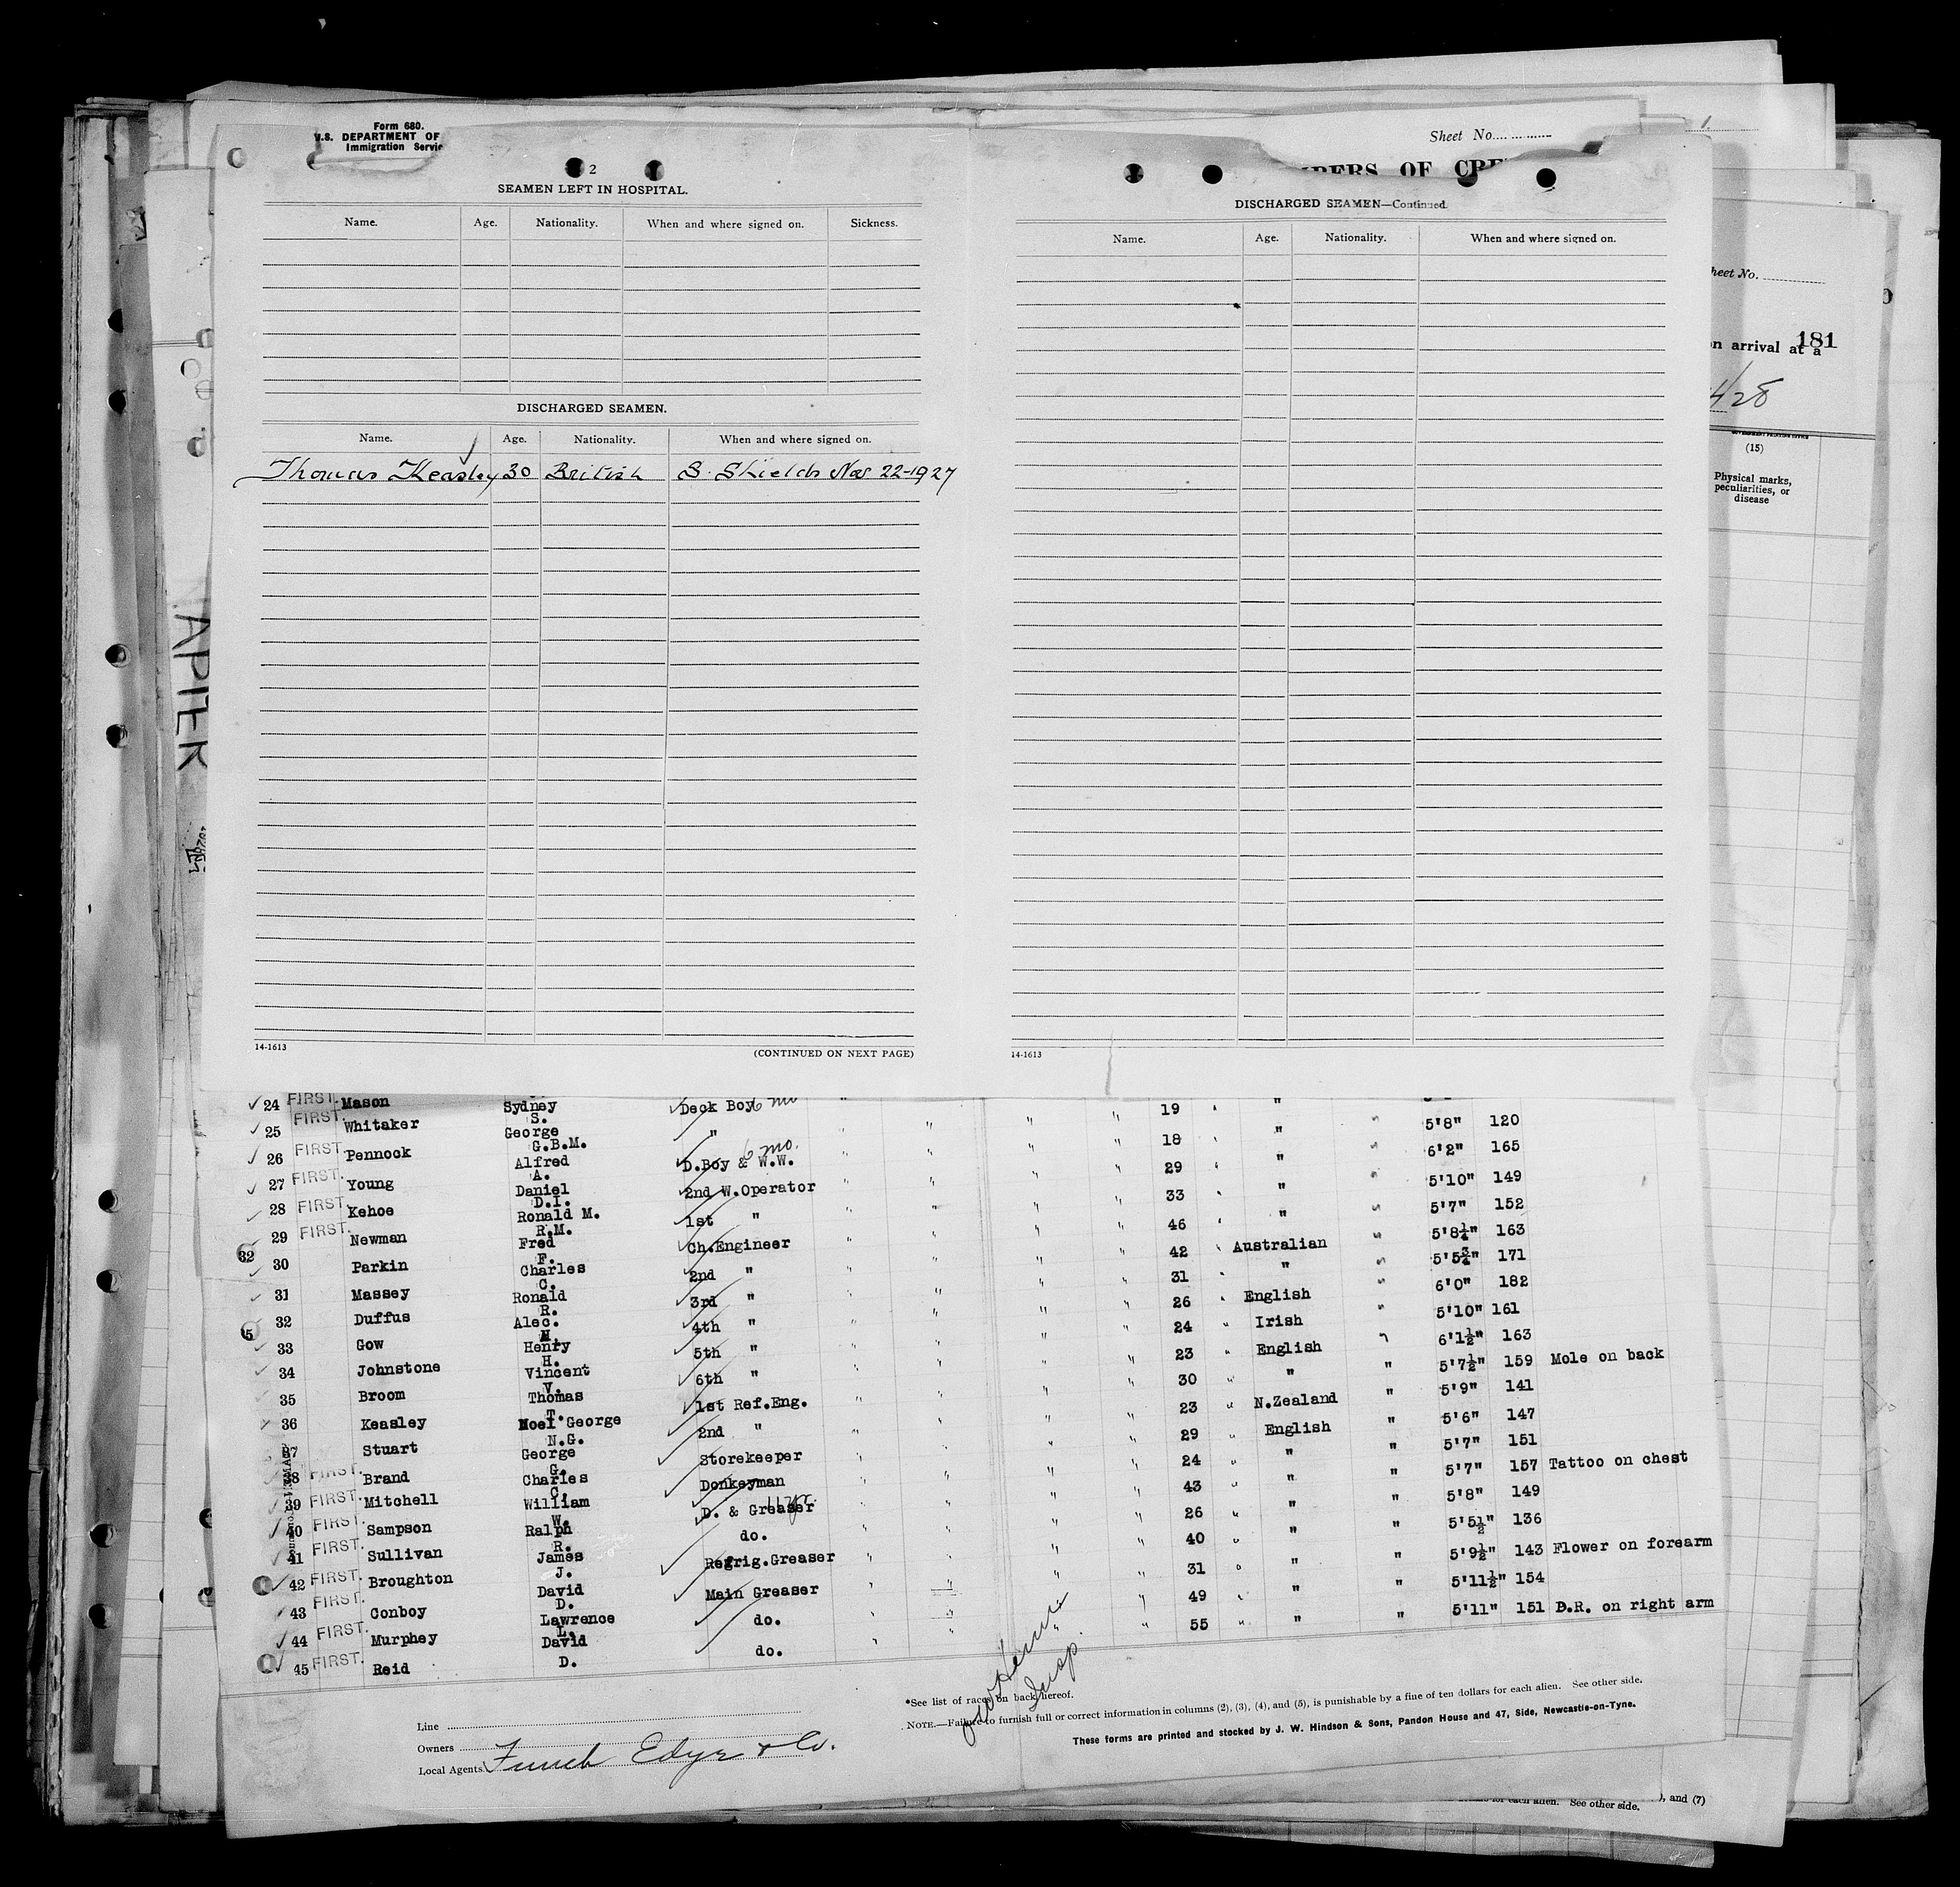 Form 680.
U.S. DEPARTMENT OF
Immigration Servi
2
SEAMEN LEFT IN HOSPITAL.
Name. Age. Nationality. When and where signed on. Sickness.
DISCHARGED SEAMEN.
Name. Age. Nationality. When and where signed on.
Thomas Keasley 30 British S. Shields Nov 22-1927
14-1613
(CONTINUED ON NEXT PAGE)
Sheet No.
MBERS OF CRE
DISCHARGED SEAMEN—Continued.
Name. Age. Nationality. When and where signed on.
14-1613
heet No.
181
n arrival at a
4/28
(15)
Physical marks,
peculiarities, or
disease
24 FIRST. Mason Sydney S. Deck Boy 6 mo " " " 19 " "
25 FIRST. Whitaker George G.B.M. " " " " " 18 " " " 5'8" 120
26 FIRST. Pennock Alfred A. D.Boy & W.W. 6 mo. " " " " 29 " " " 6'2" 165
27 FIRST. Young Daniel D.I. 2nd W.Operator " " " " 33 " " " 5'10" 149
28 FIRST. Kehoe Ronald M. R.M. 1st " " " " " 46 " " " 5'7" 152
29 FIRST. Newman Fred F. Ch.Engineer " " " " 42 " Australian " 5'8¼" 163
32
30 Parkin Charles C. 2nd " " " " " 31 " " " 5'5¾" 171
31 Massey Ronald R. 3rd " " " " " 26 " English " 6'0" 182
32 Duffus Alec. 4th " " " " " 24 " Irish " 5'10 161
5
33 Gow Henry H. 5th " " " " " 23 " English " 6'1½" 163
34 Johnstone Vincent V. 6th " " " " " 30 " " " 5'7½" 159 Mole on back
35 Broom Thomas T. 1st Ref.Eng. " " " " 23 " N.Zealand " 5'9" 141
36 Keasley Noel George N.G. 2nd " " " " " 29 " English " 5'6" 147
37 Stuart George G. Storekeeper " " " " 24 " " " 5'7" 151
38 FIRST. Brand Charles C. Donkeyman " " " " 43 " " " 5'7" 157 Tattoo on chest
39 FIRST. Mitchell William W. D. & Greaser " " " " 26 " " " 5'8" 149
40 FIRST. Sampson Ralph R. do. " " " " 40 " " " 5'5½" 136
41 FIRST. Sullivan James J. Refrig.Greaser " " " " 31 " " " 5'9½" 143 Flower on forearm
42 FIRST. Broughton David D. Main Greaser " " " " 49 " " " 5'11½" 154
43 FIRST. Conboy Lawrence L. do. " " " " 55 " " " 5'11" 151 D.R. on right arm
44 FIRST. Murphey David D. do.
45 FIRST. Reid
*See list of races on back hereof.
NOTE.—Failure to furnish full or correct information in columns (2), (3), (4), and (5), is punishable by a fine of ten dollars for each alien. See other side.
These forms are printed and stocked by J. W. Hindson & Sons, Pandon House and 47, Side, Newcastle-on-Tyne.
Insp.
Line
Owners
Local Agents Funch Edye & Co.
for each alien. See other side.
), and (7)